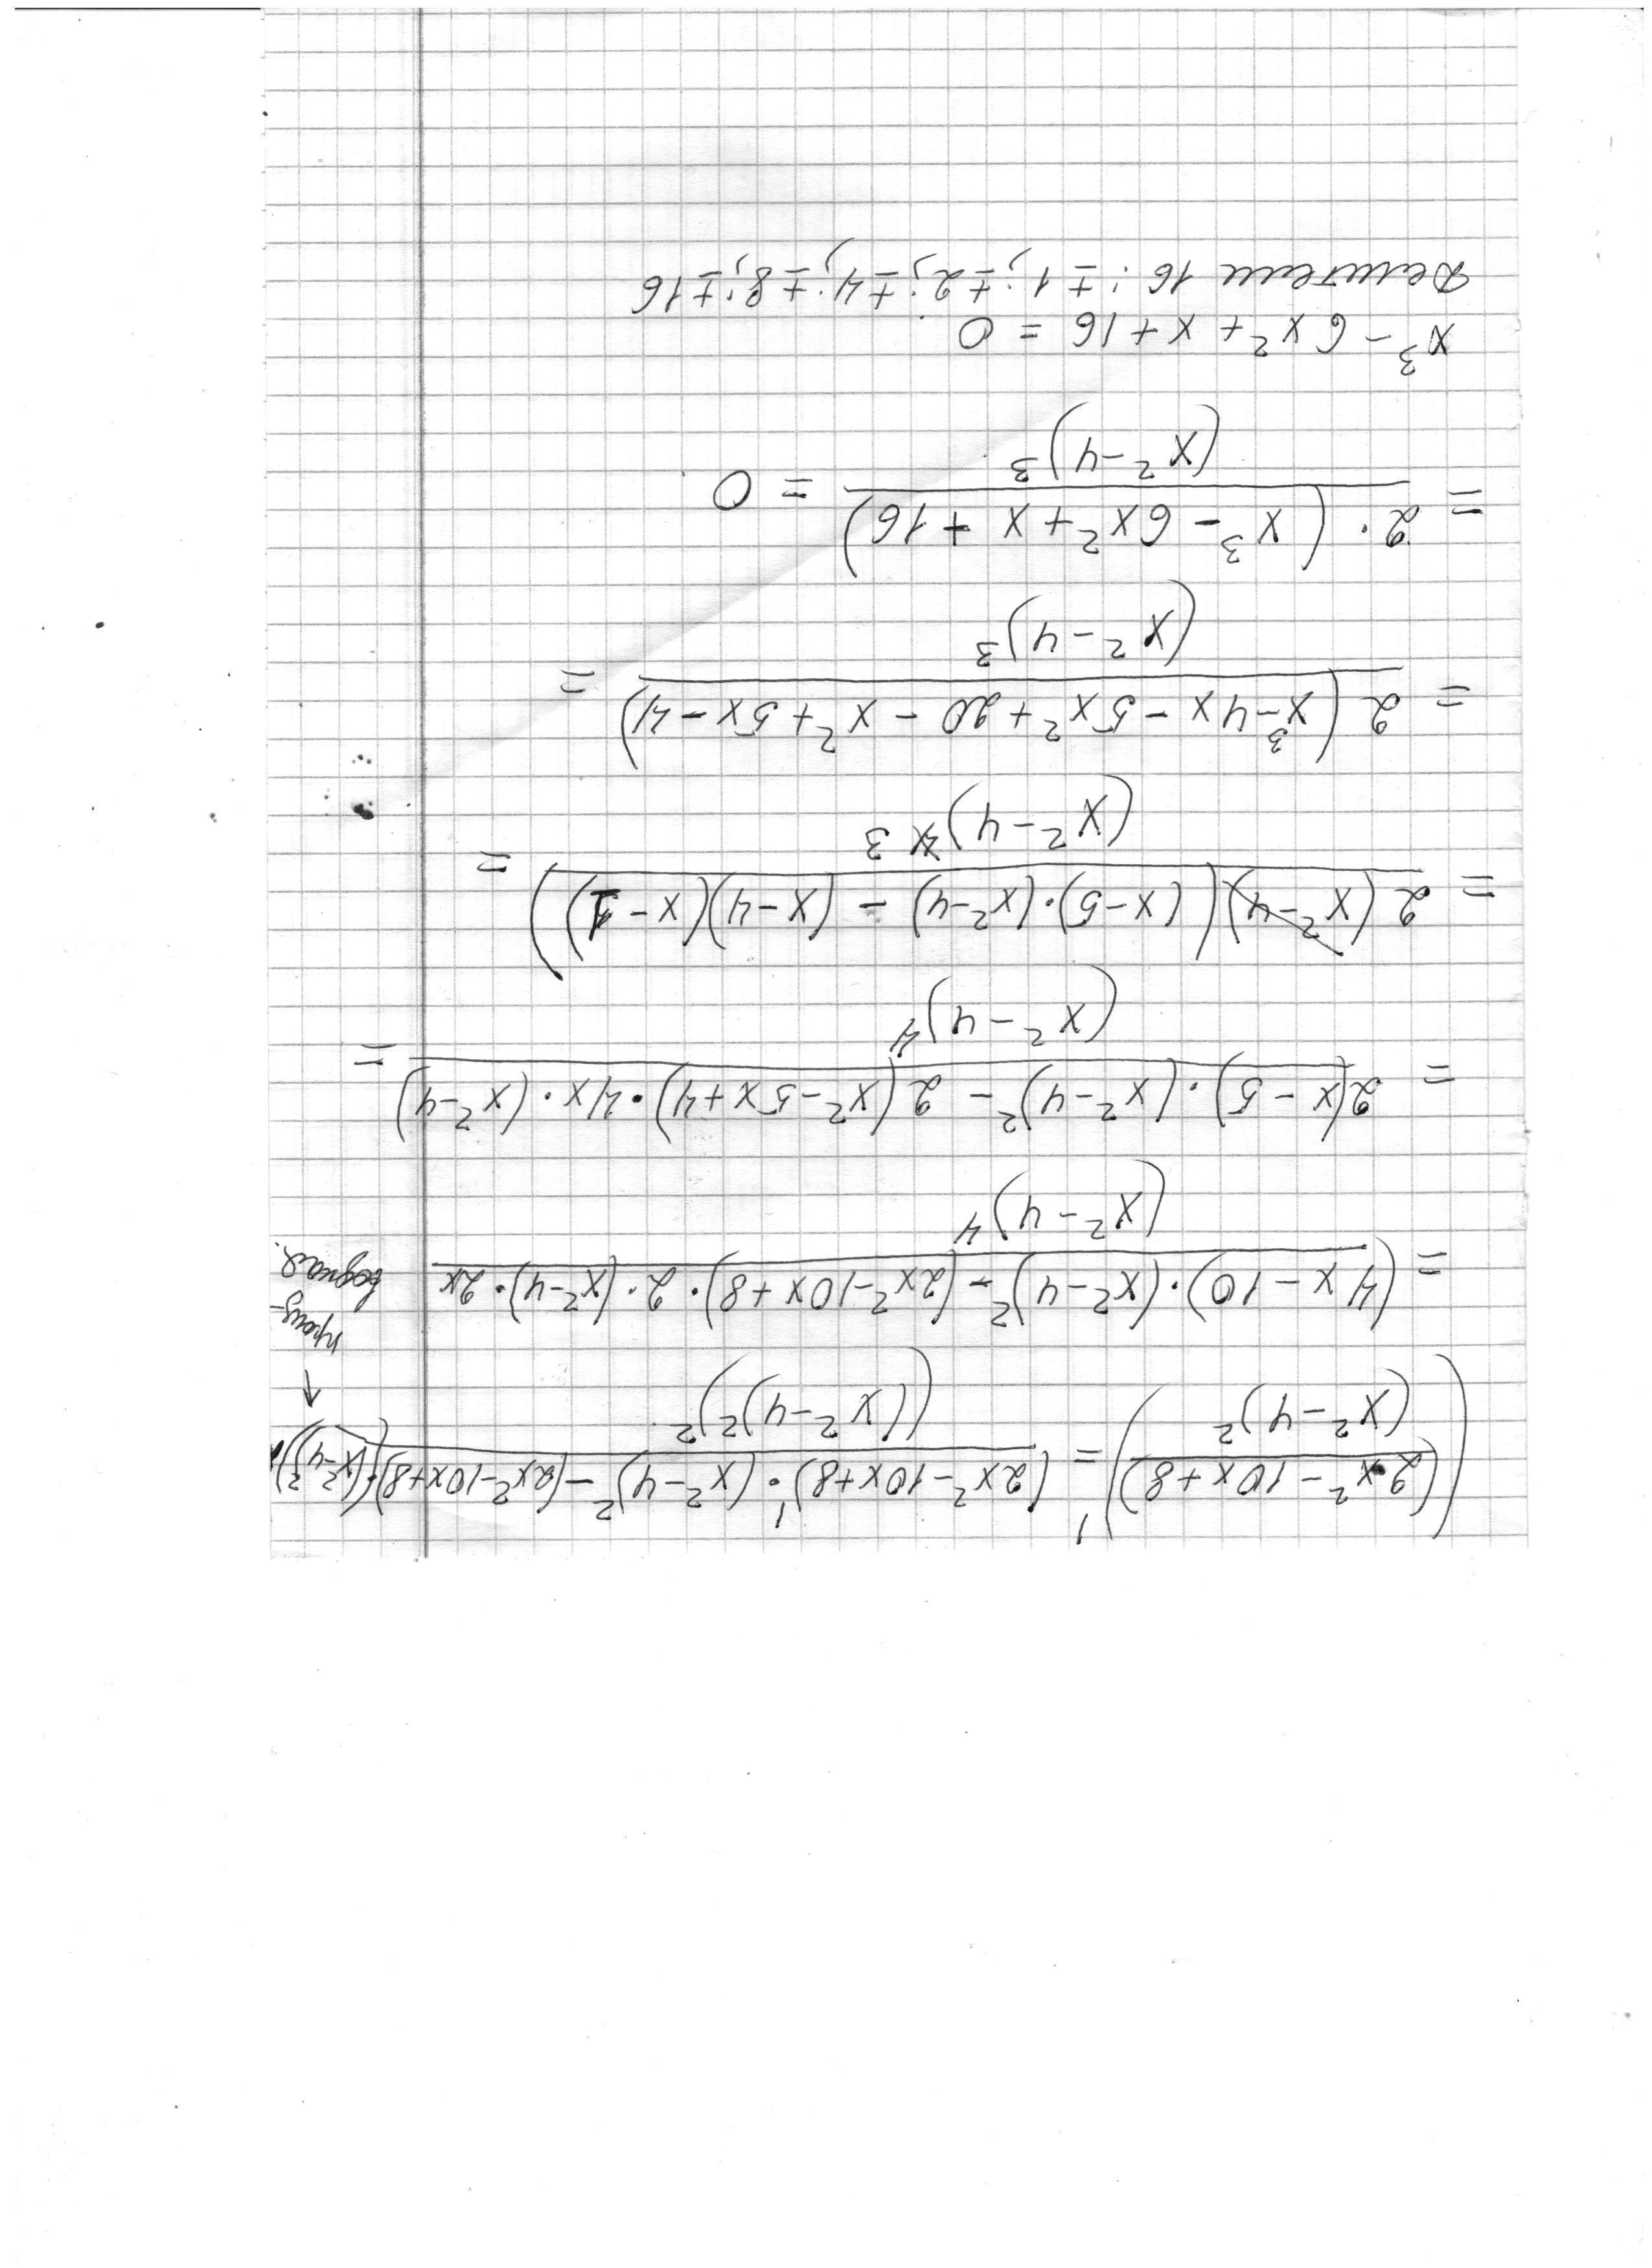 ((2x² - 10x + 8)/(x² - 4)²)' = ((2x² - 10x + 8)' · (x² - 4)² - (2x² - 10x + 8) · ((x² - 4)²)')/((x² - 4)²)²
↑ произ-
водная.
= ((4x - 10) · (x² - 4)² - (2x² - 10x + 8) · 2 · (x² - 4) · 2x)/(x² - 4)⁴
= (2(x - 5) · (x² - 4)² - 2(x² - 5x + 4) · 4x · (x² - 4))/(x² - 4)⁴ =
= (2(x² - 4)((x - 5) · (x² - 4) - (x - 4)(x - 1)))/(x² - 4)³ =
= (2(x³ - 4x - 5x² + 20 - x² + 5x - 4))/(x² - 4)³ =
= (2 · (x³ - 6x² + x + 16))/(x² - 4)³ = 0
x³ - 6x² + x + 16 = 0
Делители 16: ± 1; ± 2; ± 4; ± 8; ± 16